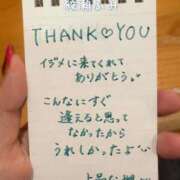 THANK♡YOU
イヅメに来てくれて
ありがとう
こんなにすぐ
逢えると思って
なかったから
うれしかったよ